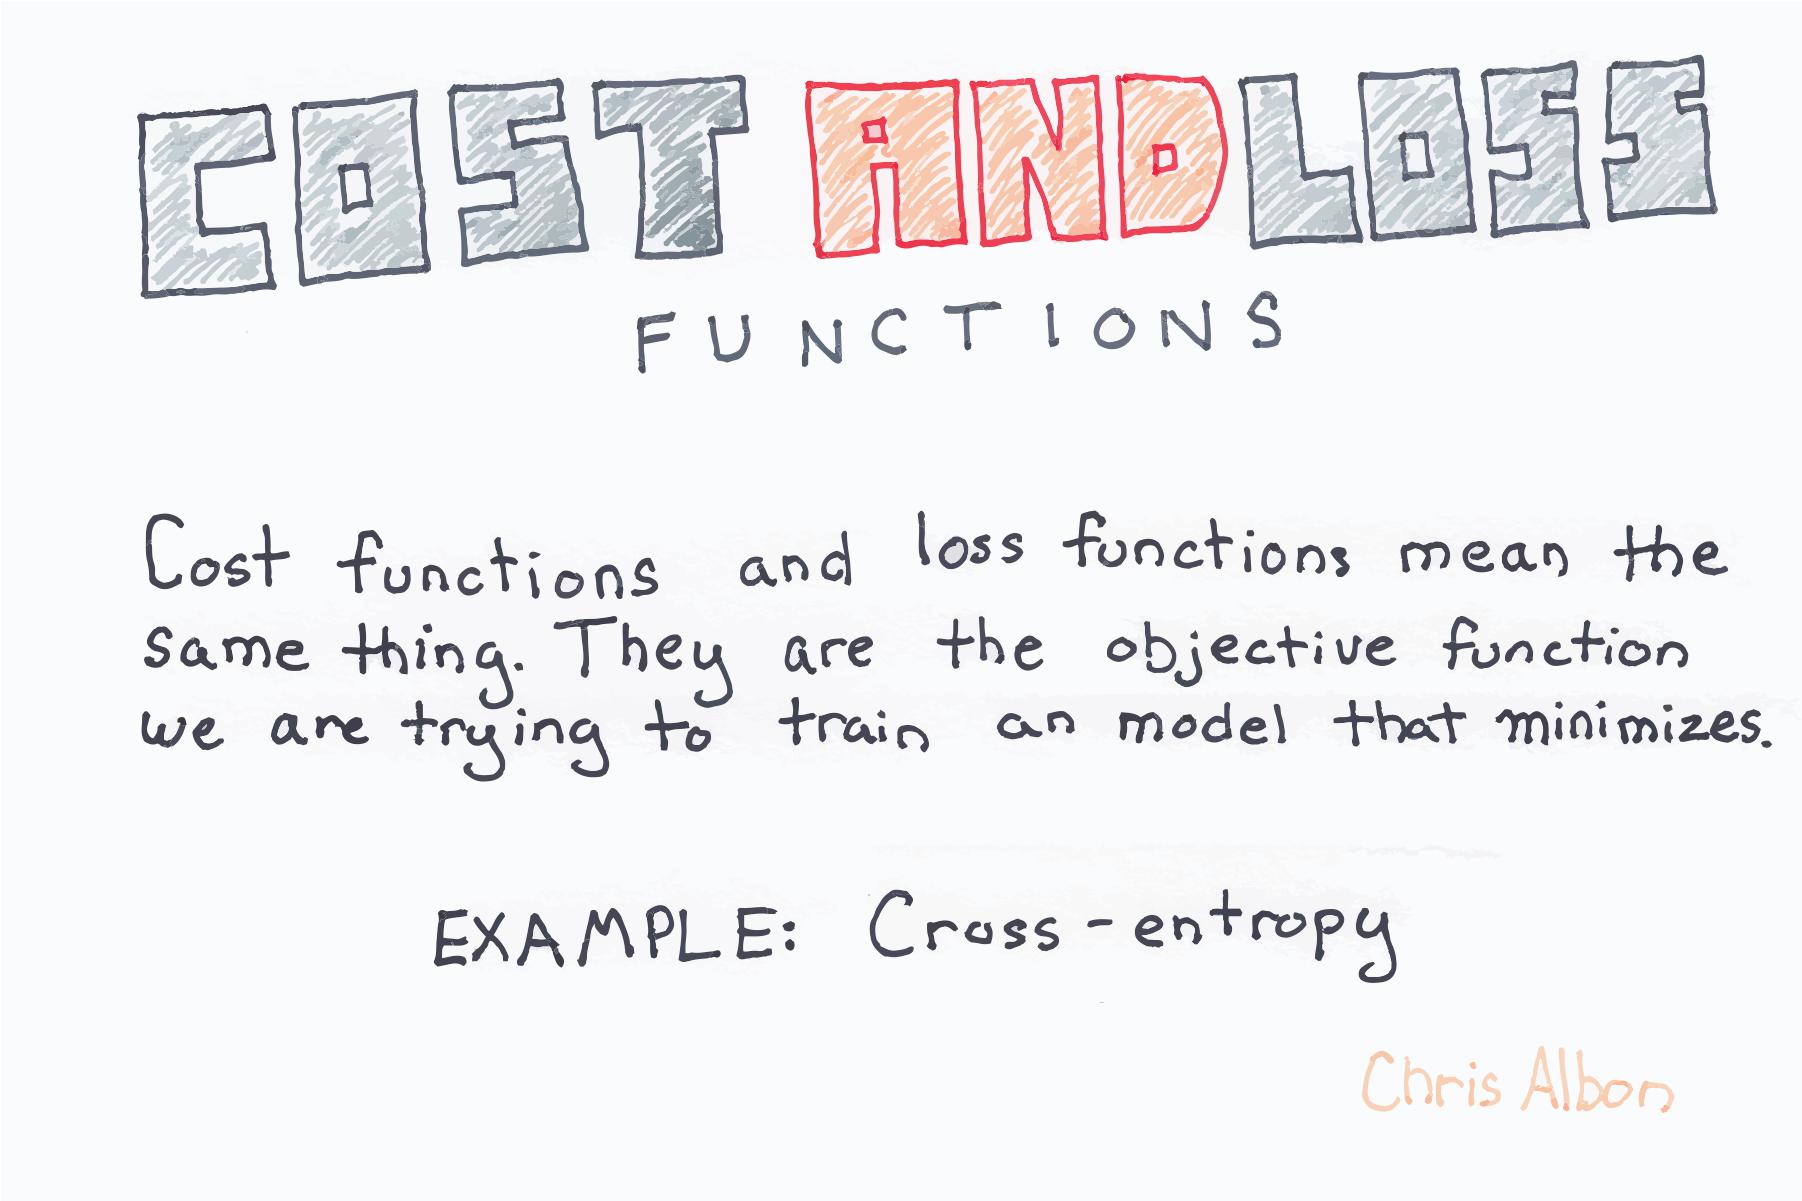 COST AND LOSS
FUNCTIONS
Cost functions and loss functions mean the
same thing. They are the objective function
we are trying to train an model that minimizes.
EXAMPLE: Cross-entropy
Chris Albon